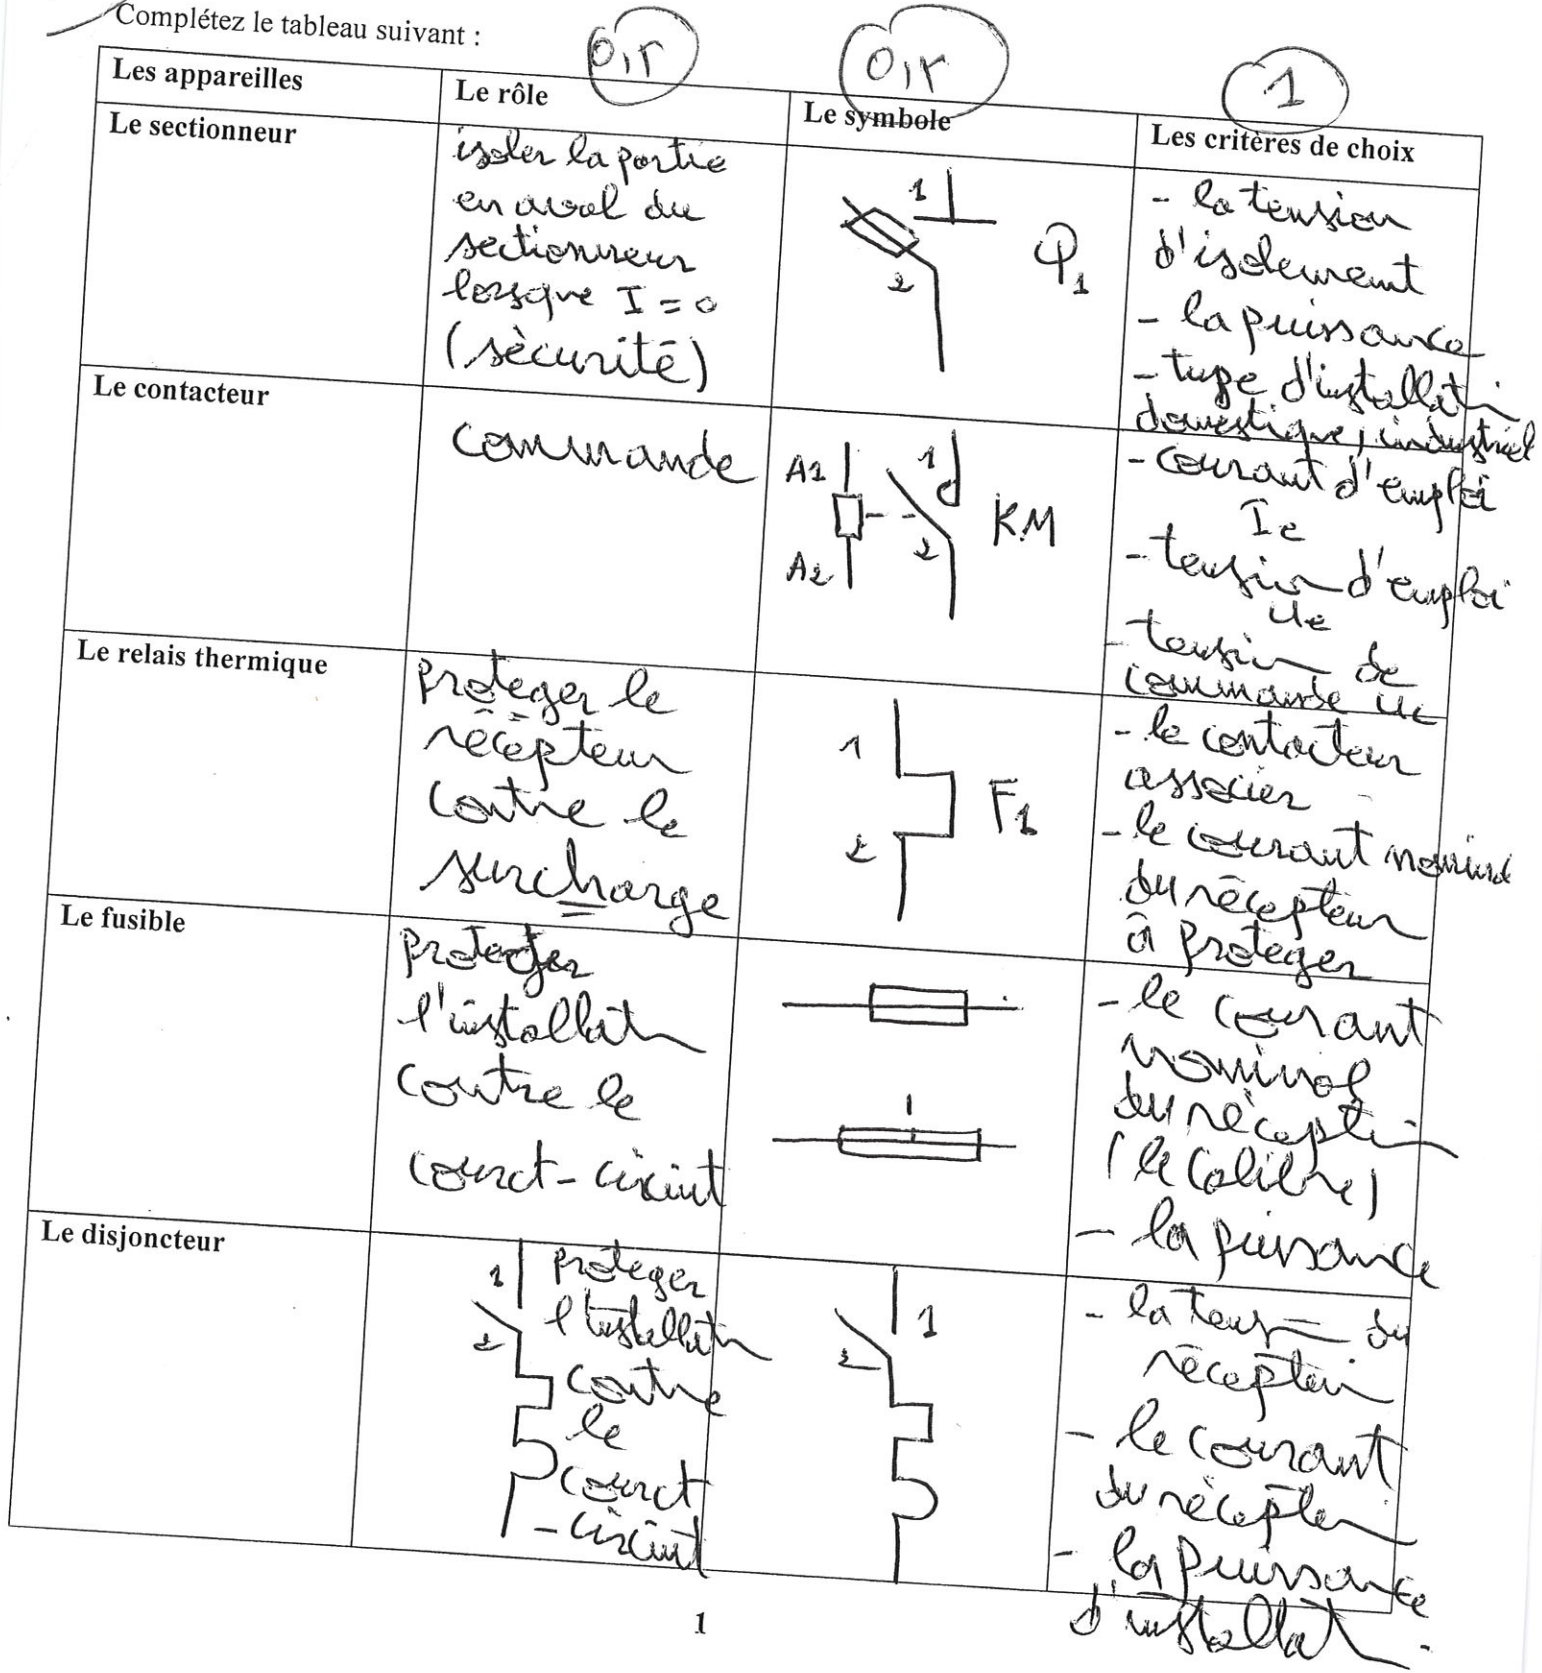 Complétez le tableau suivant :
0,5
0,5
1
Les appareilles
Le rôle
Le symbole
Les critères de choix
Le sectionneur
isoler la partie
en aval du
sectionneur
lorsque I = 0
(sècurité)
1
2
Q1
- la tension
d'isolement
- la puissance
- type d'installati
domestique, industriel
Le contacteur
commande
A1
A2
1
2
KM
- courant d'emploi
Ie
- tension d'emploi
Ue
- tension de
commande Uc
Le relais thermique
Protéger le
récepteur
contre le
surcharge
1
2
F1
- le contacteur
associer
- le courant nominal
du récepteur
à proteger
Le fusible
l'installat
contre le
courct-circiut
- le courant
nominal
du récepteur
(le calibre)
- la puissance
Le disjoncteur
1
2
Protéger
l'installat
contre
le
courct
-circiut
1
2
- la tens du
récepteur
- le courant
du récepteur
- la puissance
d'installat
1